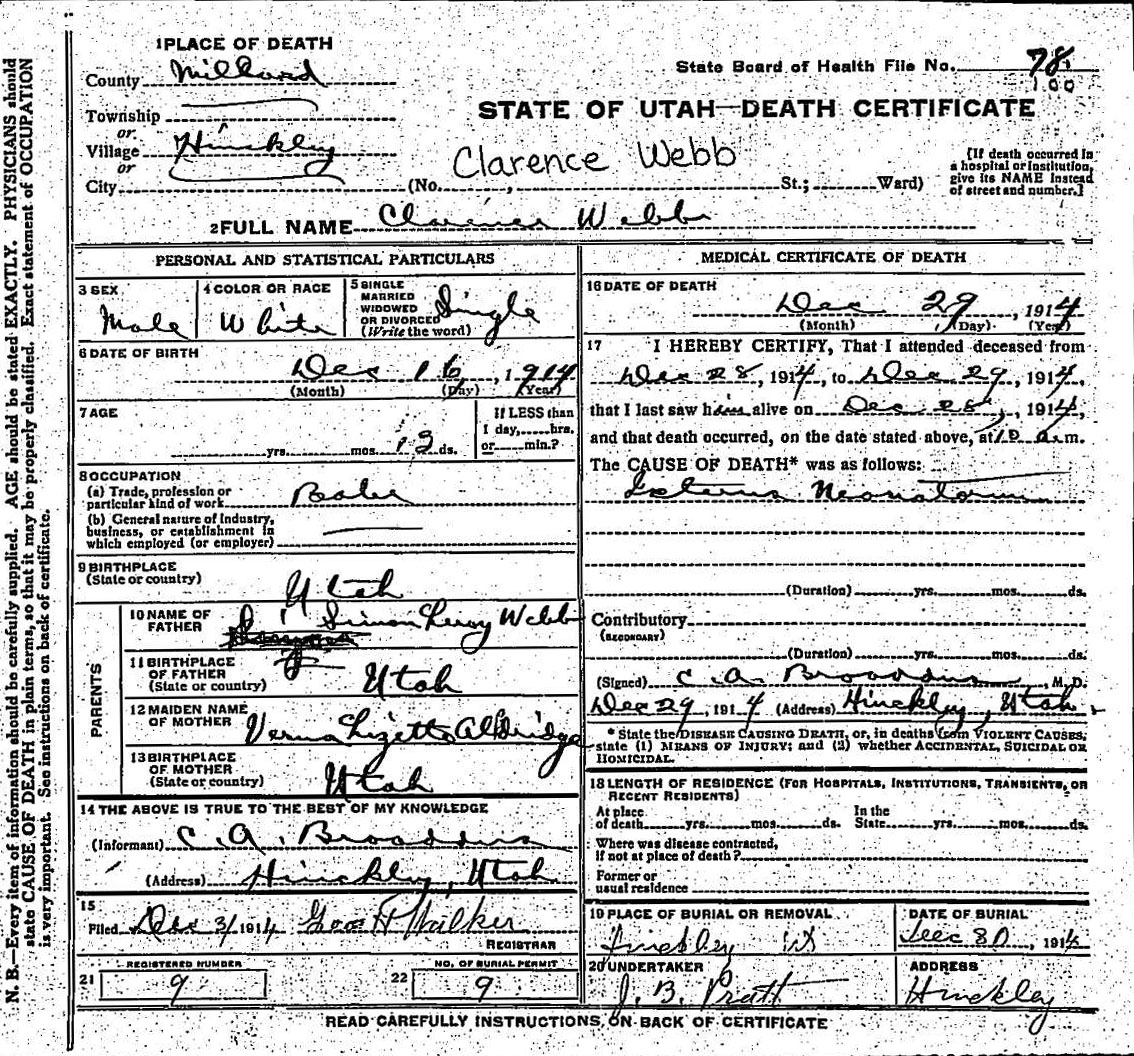 1 PLACE OF DEATH
County Millard
State Board of Health File No. 78
100
STATE OF UTAH—DEATH CERTIFICATE
Township
or
Village Hinckley
or
City (No. , St.; Ward)
Clarence Webb
{If death occurred in
a hospital or institution,
give its NAME instead
of street and number.}
2 FULL NAME Clarence Webb
PERSONAL AND STATISTICAL PARTICULARS
3 SEX
Male
4 COLOR OR RACE
White
5 SINGLE
MARRIED
WIDOWED
OR DIVORCED
(Write the word)
Single
6 DATE OF BIRTH
Dec 16, 1914
(Month) (Day) (Year)
7 AGE
yrs. mos. 13 ds.
If LESS than
1 day, hrs.
or min.?
8 OCCUPATION
(a) Trade, profession or
particular kind of work Babe
(b) General nature of Industry,
business, or establishment in
which employed (or employer)
9 BIRTHPLACE
(State or country)
Utah
PARENTS
10 NAME OF
FATHER
Simon Leroy Webb
11 BIRTHPLACE
OF FATHER
(State or country)
Utah
12 MAIDEN NAME
OF MOTHER
Verna Lizetta Aldridge
13 BIRTHPLACE
OF MOTHER
(State or country)
Utah
14 THE ABOVE IS TRUE TO THE BEST OF MY KNOWLEDGE
(Informant) C. A. Broaddus
(Address) Hinckley, Utah
15
Filed Dec 31 1914 Geo H Walker
REGISTRAR
21 REGISTERED NUMBER
9
22 NO. OF BURIAL PERMIT
9
MEDICAL CERTIFICATE OF DEATH
16 DATE OF DEATH
Dec 29, 1914
(Month) (Day) (Year)
17 I HEREBY CERTIFY, That I attended deceased from
Dec 28, 1914, to Dec 29, 1914,
that I last saw him alive on Dec 28, 1914,
and that death occurred, on the date stated above, at 10 a.m.
The CAUSE OF DEATH* was as follows:
Icterus Neonatorum
(Duration) yrs. mos. ds.
Contributory
(SECONDARY)
(Duration) yrs. mos. ds.
(Signed) C. A. Broaddus, M. D.
Dec 29, 1914 (Address) Hinckley, Utah.
* State the DISEASE CAUSING DEATH, or, in deaths from VIOLENT CAUSES,
state (1) MEANS OF INJURY; and (2) whether ACCIDENTAL, SUICIDAL OR
HOMICIDAL.
18 LENGTH OF RESIDENCE (FOR HOSPITALS, INSTITUTIONS, TRANSIENTS, OR
RECENT RESIDENTS)
At place
of death yrs. mos. ds.
In the
State yrs. mos. ds.
Where was disease contracted,
if not at place of death?
Former or
usual residence
19 PLACE OF BURIAL OR REMOVAL
Hinckley Ut
DATE OF BURIAL
Dec 30, 1914
20 UNDERTAKER
J. B. Pratt
ADDRESS
Hinckley
READ CAREFULLY INSTRUCTIONS ON BACK OF CERTIFICATE
N. B.—Every item of information should be carefully supplied. AGE should be stated EXACTLY. PHYSICIANS should
state CAUSE OF DEATH in plain terms, so that it may be properly classified. Exact statement of OCCUPATION
is very important. See instructions on back of certificate.